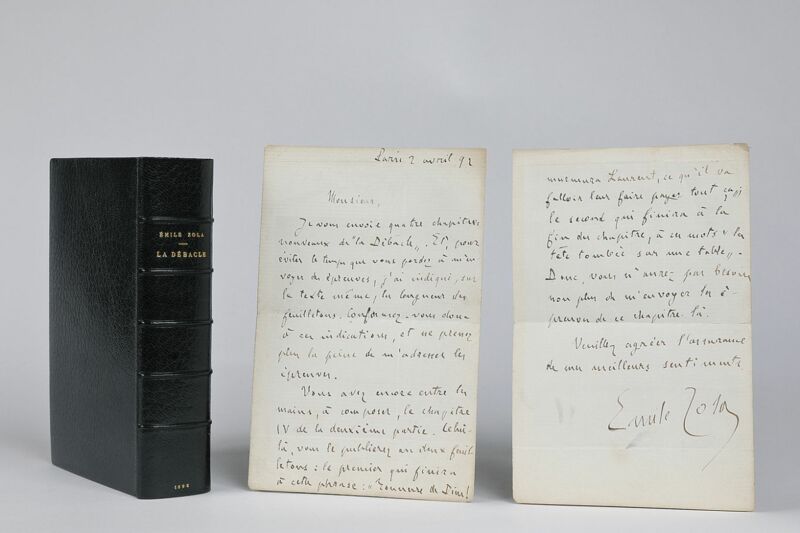 ÉMILE ZOLA
LA DÉBACLE
1892
Paris 2 avril 92
Monsieur,
Je vous envoie quatre chapitres
nouveaux de "la Débâcle". Et, pour
éviter le temps que vous perdez à m'en-
voyer des épreuves, j'ai indiqué, sur
le texte même, la longueur des
feuilletons. Conformez-vous donc
à ces indications, et ne prenez
plus la peine de m'adresser les
épreuves.
Vous avez encore entre les
mains, à composer, le chapitre
IV de la deuxième partie. Celui-
là, vous le publierez en deux feuil-
letons : le premier qui finira
à cette phrase : "Tonnerre de Dieu!
murmura Laurent, ce qu'il va
falloir leur faire payer tout ça",
le second qui finira à la
fin du chapitre, à ces mots "la
tête tombée sur une table".
Donc, vous n'aurez pas besoin
non plus de m'envoyer les é-
preuves de ce chapitre-là.
Veuillez agréer l'assurance
de mes meilleurs sentiments
Emile Zola